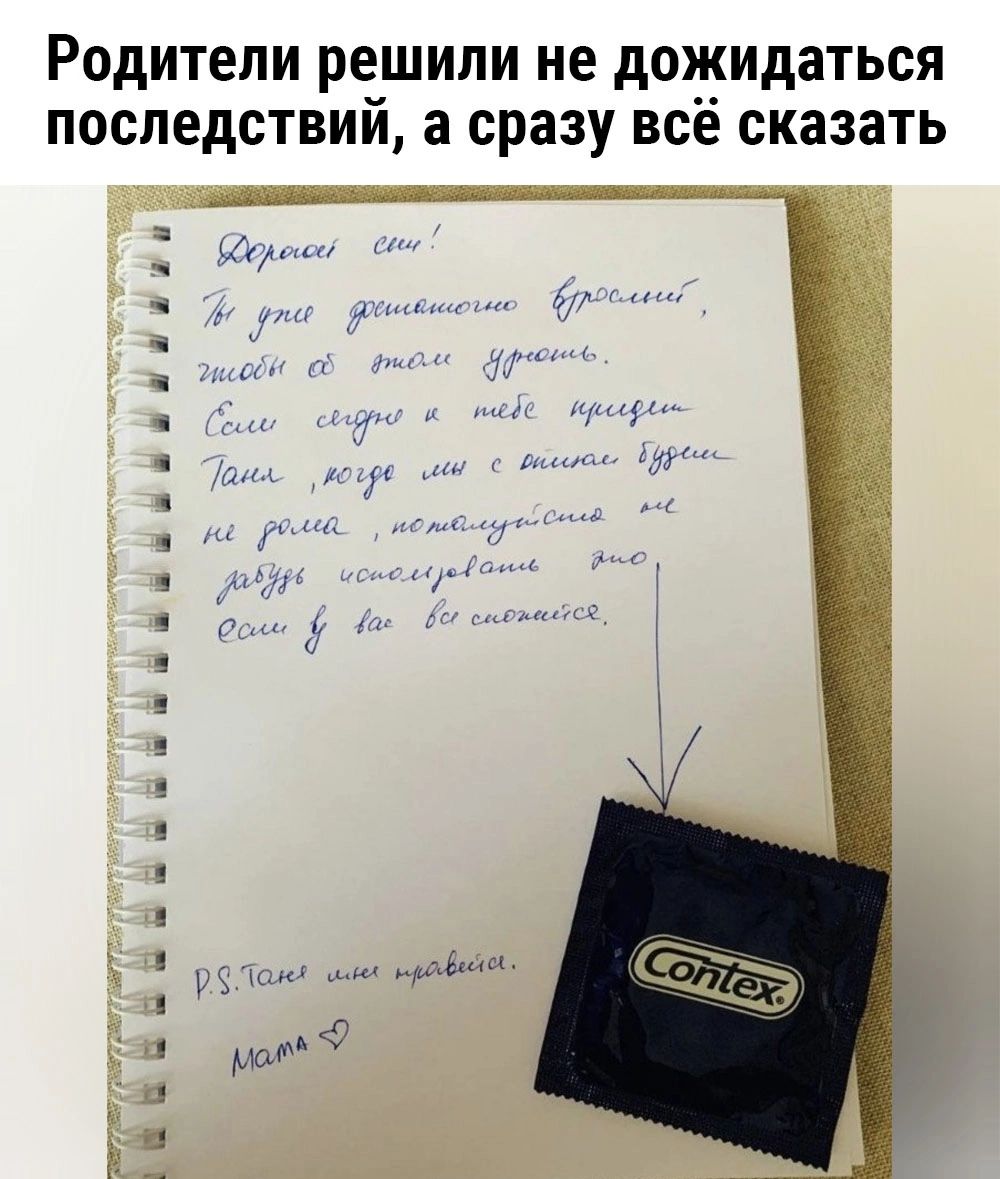 Родители решили не дожидаться
последствий, а сразу всё сказать
Дорогой сын!
Ты уже достаточно взрослый,
чтобы об этом узнать.
Если сегодня к тебе придет
Таня, когда мы с отцом будем
не дома, пожалуйста не
забудь использовать это
если у вас все сложится.
P.S. Таня мне нравится.
Мама ♡
Contex®